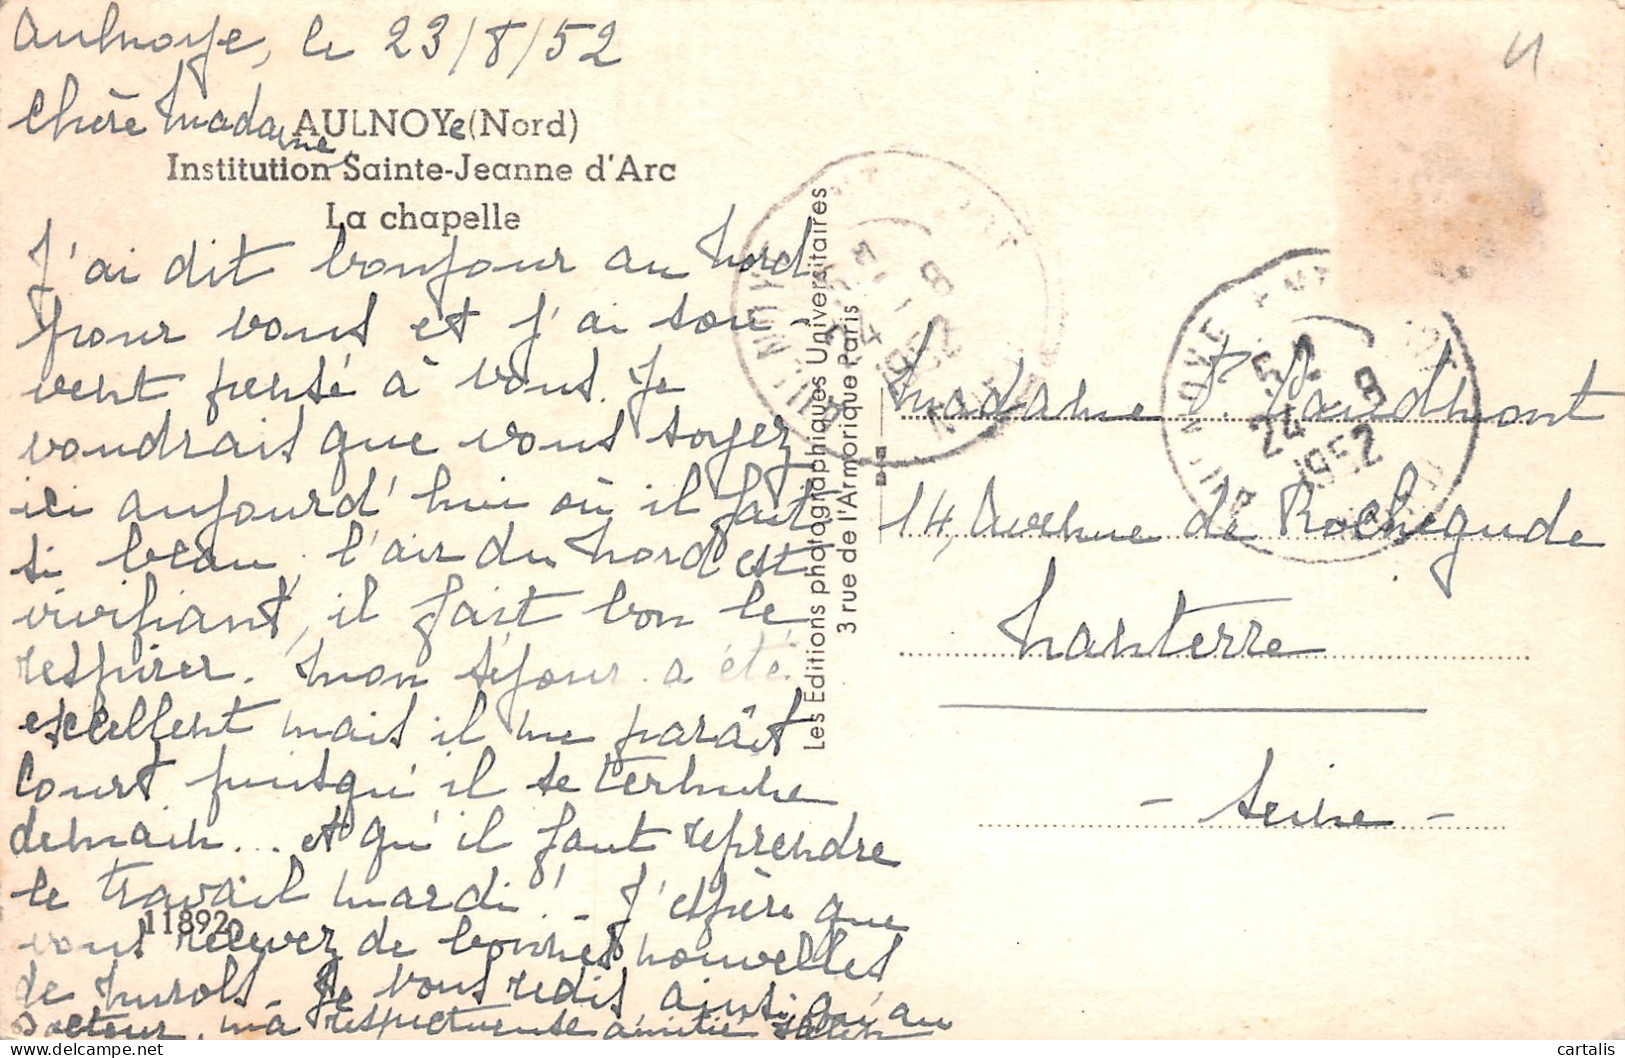 Aulnoye, le 23/8/52
Chère Madame
AULNOYe (Nord)
Institution Sainte-Jeanne d'Arc
La chapelle
J'ai dit bonjour au Nord
pour vous et j'ai sou-
vent pensé à vous. Je
voudrais que vous soyez
ici aujourd'hui où il fait
si beau, l'air du Nord est
vivifiant, il fait bon le
respirer. Mon séjour a été
excellent mais il me paraît
court puisqu'il se termine
demain... et qu'il faut reprendre
le travail mardi! - J'espère que
11892
vous recevez de bonnes nouvelles
de Murols - Je vous redis ainsi qu'au
Docteur, ma respectueuse amitié
Les Editions photographiques Universitaires
3 rue de l'Armorique Paris
24 - 8
1952
24 - 8
1952
Madame P. Vaudmont
14, Avenue de Rochegude
Nanterre
- Seine -
cartalis